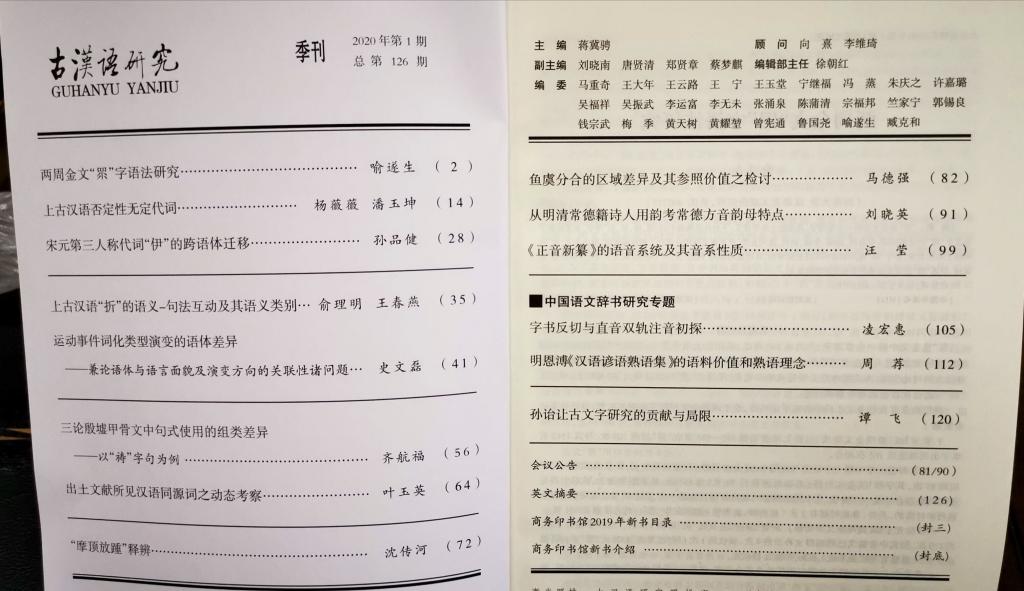 古漢语研究
GUHANYU YANJIU
季刊
2020年第1期
总第126期
两周金文“眔”字语法研究……喻遂生(2)
上古汉语否定性无定代词……杨薇薇 潘玉坤(14)
宋元第三人称代词“伊”的跨语体迁移……孙品健(28)
上古汉语“折”的语义-句法互动及其语义类别…俞理明 王春燕(35)
运动事件词化类型演变的语体差异
——兼论语体与语言面貌及演变方向的关联性诸问题…史文磊(41)
三论殷墟甲骨文中句式使用的组类差异
——以“祷”字句为例……齐航福(56)
出土文献所见汉语同源词之动态考察……叶玉英(64)
“摩顶放踵”释辨……沈传河(72)
主编 蒋冀骋 顾问 向熹 李维琦
副主编 刘晓南 唐贤清 郑贤章 蔡梦麒 编辑部主任 徐朝红
编委 马重奇 王大年 王云路 王宁 王玉堂 宁继福 冯蒸 朱庆之 许嘉璐
吴福祥 吴振武 李运富 李无未 张涌泉 陈蒲清 宗福邦 竺家宁 郭锡良
钱宗武 梅季 黄天树 黄耀堃 曾宪通 鲁国尧 喻遂生 臧克和
鱼虞分合的区域差异及其参照价值之检讨……马德强(82)
从明清常德籍诗人用韵考常德方音韵母特点……刘晓英(91)
《正音新纂》的语音系统及其音系性质……汪莹(99)
■中国语文辞书研究专题
字书反切与直音双轨注音初探……凌宏惠(105)
明恩溥《汉语谚语熟语集》的语料价值和熟语理念……周荐(112)
孙诒让古文字研究的贡献与局限……谭飞(120)
会议公告……(81/90)
英文摘要……(126)
商务印书馆2019年新书目录……(封三)
商务印书馆新书介绍……(封底)